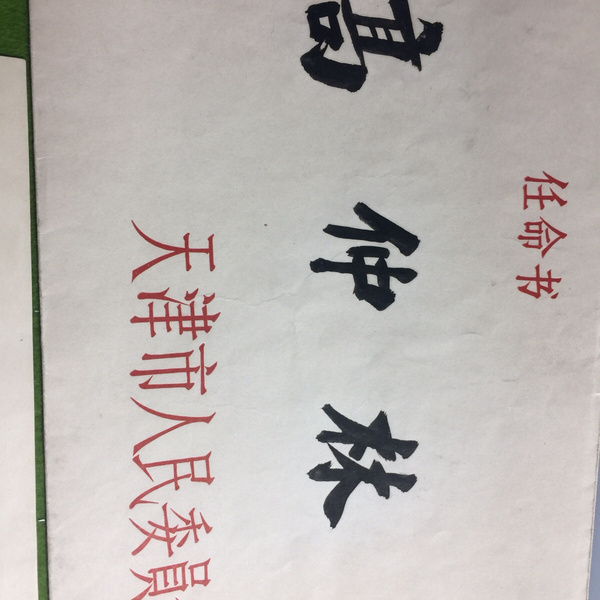 任命书
高仲林
天津市人民委員